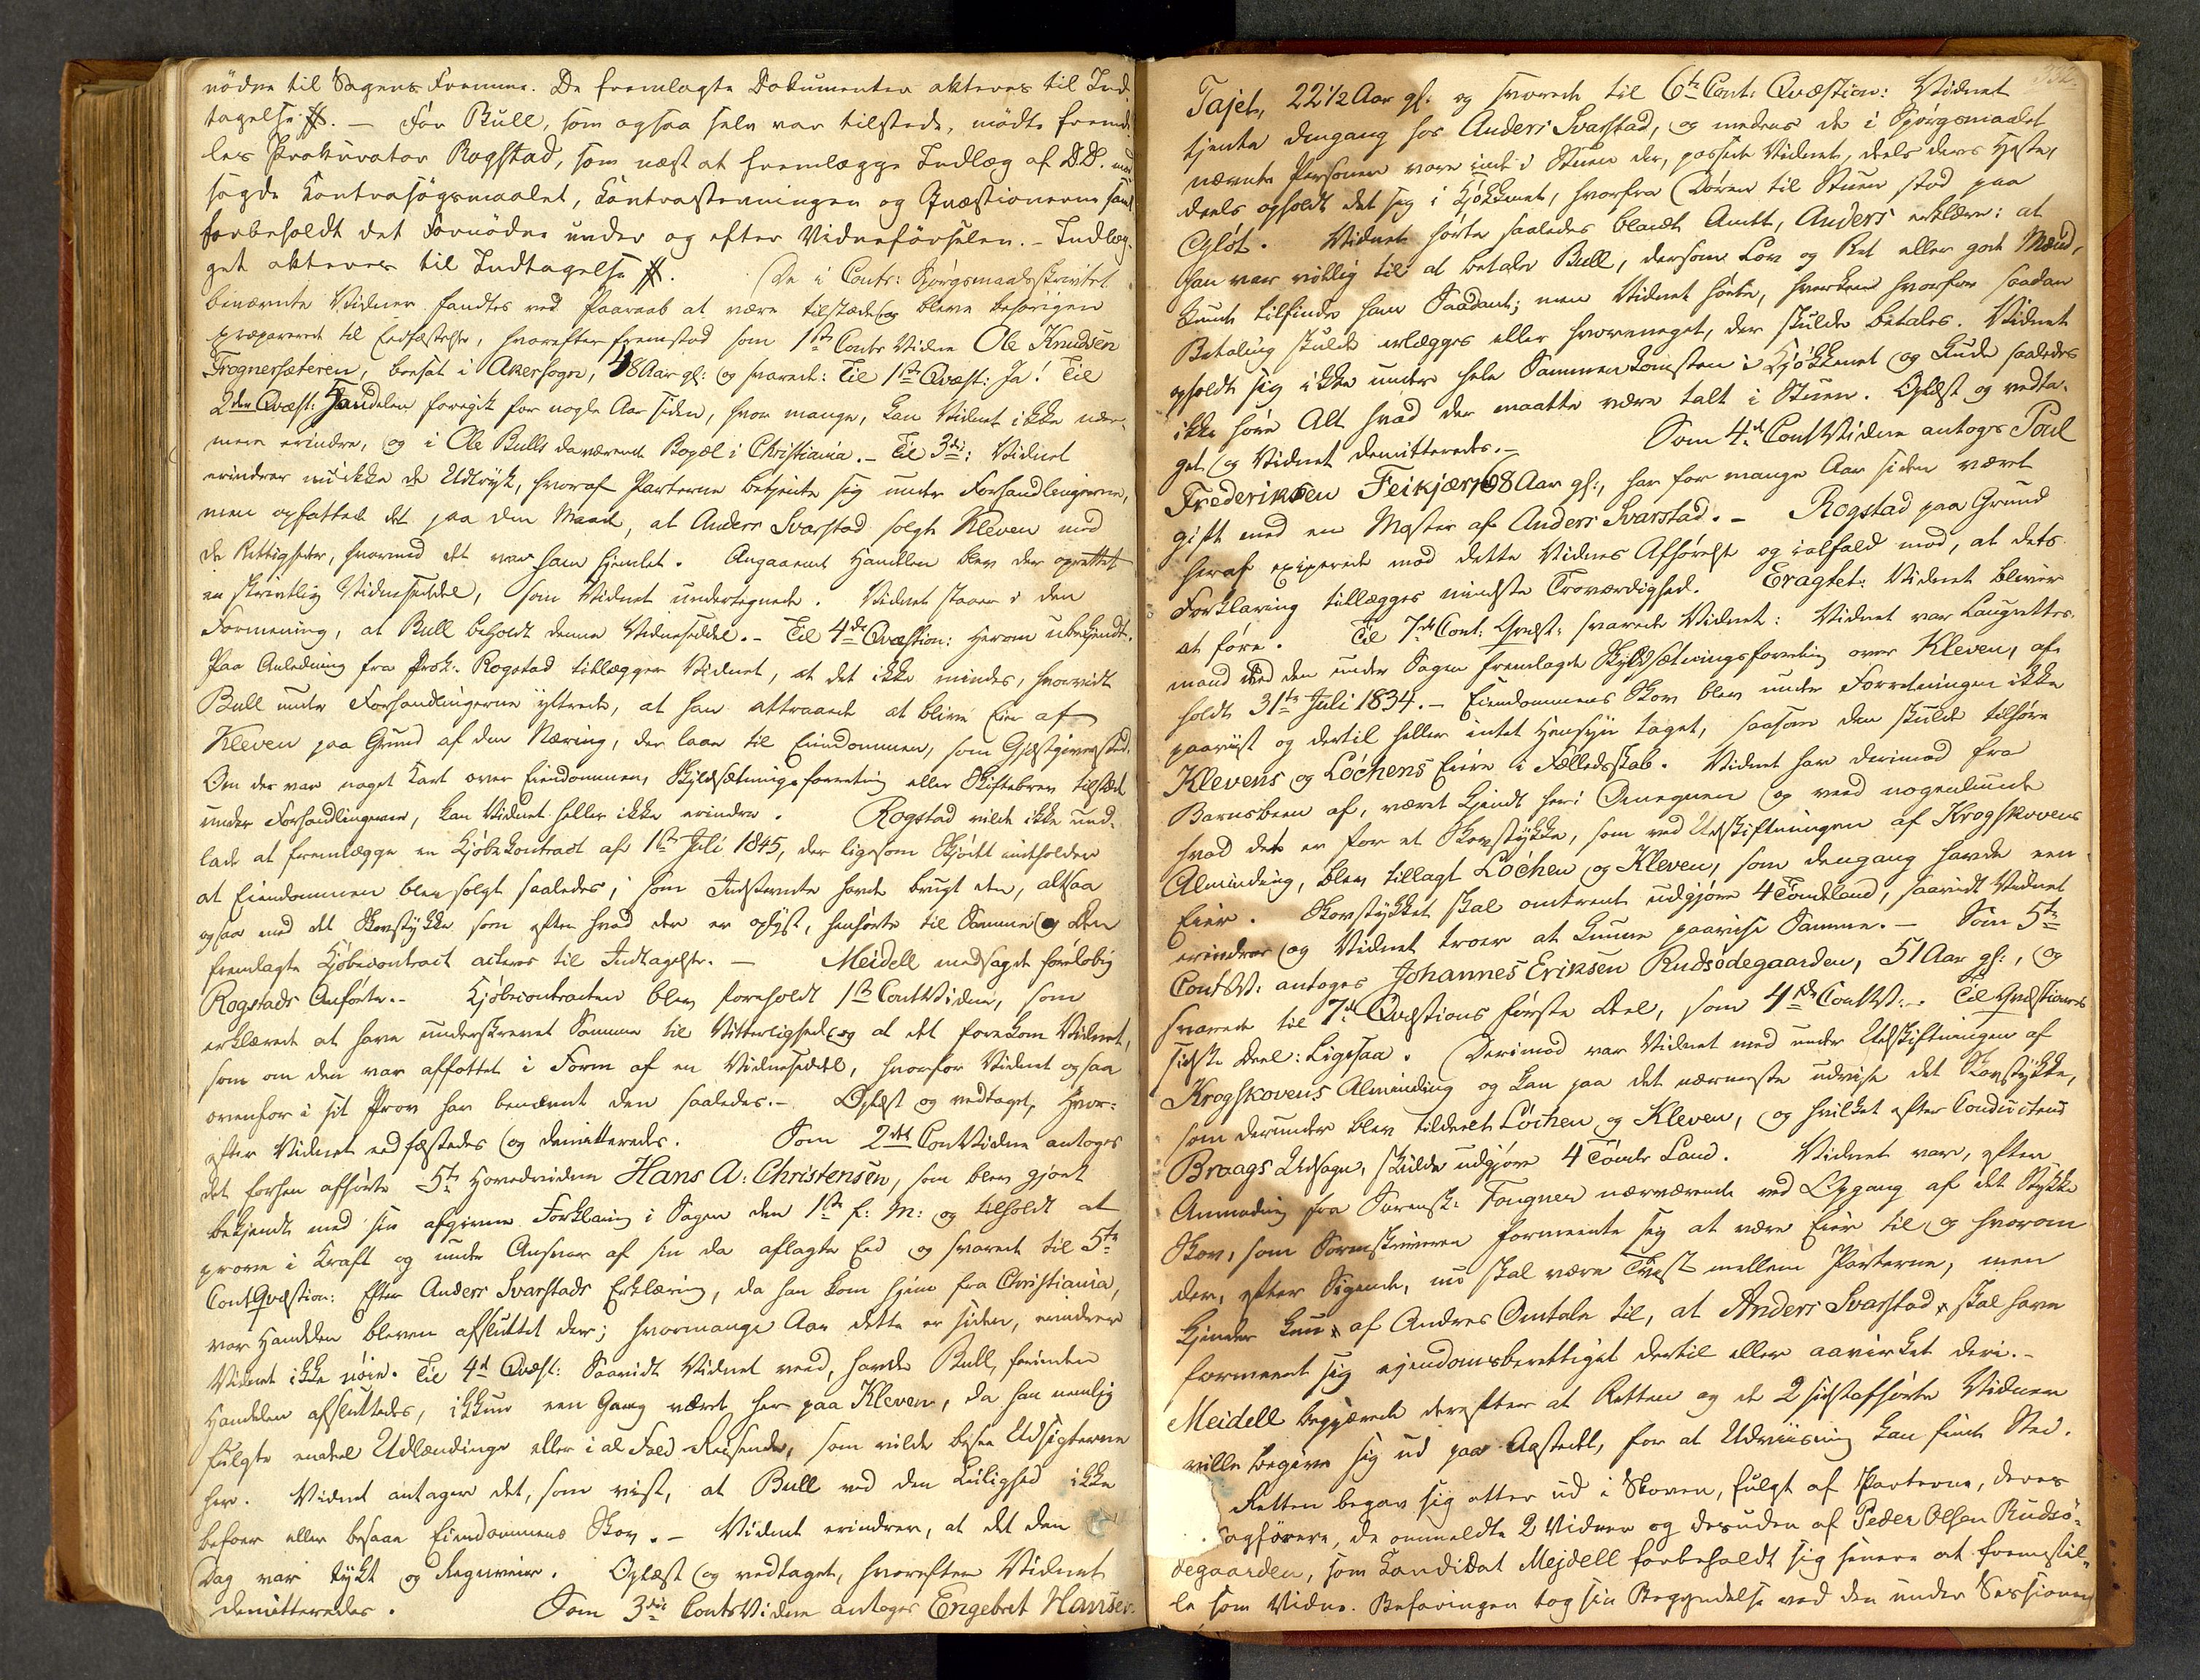 nödne til Sagens Fremme. De fremlagte Dokumenter akteres til Ind-
tagelse #. — For Bull, som ogsaa selv var tilstede, mödte fremde-
les Prokurator Rogstad, som næst at fremlægge Indlæg af D.D. med
sagde Kontrasögsmaalet, Kontrastevningen og Quæstionerne samt
forbeholdt det Fornödne under og efter Vidneförselen. – Indlæg-
get akteres til Indtagelse #. De i Contr: Spörgsmaalsskriftet
benævnte Vidner fandtes ved Paaraab at være tilstede og bleve behörigen
præparerede til Eedfæstelse, hvorefter fremstod som 1ste Contr Vidne Ole Knudsen
Frognersæteren, boesat i Akersogn, 48 Aar gl: og svarede: Til 1ste Qvæst: Ja! Til
2den Qvæst: Handelen foregik for nogle Aar siden, hvor mange, kan Vidnet ikke nær-
mere erindre, og i Ole Bulls daværende Bopæl i Christiania. – Til 3die: Vidnet
erindrer nu ikke de Udtryk, hvoraf Parterne betjente sig under Forhandlingerne,
men opfattede det paa den Maade, at Anders Svarstad solgte Kleven med
de Rettigheder, hvormed det var ham hjemlet. Angaaende Handelen blev der oprettet
en skriftlig Vidnesseddel, som Vidnet undertegnede. Vidnet staaer i den
Formening, at Bull beholdt denne Vidneseddel. – Til 4de Qvæstion: Herom ubekjendt.
Paa Anledning fra Prok: Rogstad tillægger Vidnet, at det ikke mindes, hvorvidt
Bull under Forhandlingerne yttrede, at han attraaede at blive Eier af
Kleven paa Grund af den Næring, der laae til Eiendommen, som Gjæstgiversted.
Om der var noget Kart over Eiendommen, Skyldsætningsforretning eller Skiftebrev tilstede
under Forhandlingerne, kan Vidnet heller ikke erindre. Rogstad vilde ikke und-
lade at fremlægge en Kjöbekontract af 1ste Juli 1845, der ligesom Skjödet indholder
at Eiendommen blev solgt saaledes, som Indstevnte havde brugt den, altsaa
ogsaa med det Skovstykke som efter hvad der er oplyst, henhörte til Samme og den
fremlagte Kjöbecontract acteres til Indtagelse. — Meidell modsagde foreløbig
Rogstads Anförte. – Kjöbecontracten blev foreholdt 1ste ContrVidne, som
erklærede at have underskrevet Samme til Vitterlighed og at det forekom Vidnet,
som om den var affattet i Form af en Vidneseddel, hvorfor Vidnet ogsaa
ovenfor i sit Prov har benævnt den saaledes. – Oplæst og vedtaget, hvor-
efter Vidnet eedfæstedes og demitteredes. Som 2det ContrVidne antoges
det forhen afhörte 5te Hovedvidne Hans A: Christensen, som blev gjort
bekjendt med sin afgivne Forklaring i Sagen den 1ste f: M: og tilholdt at
prove i Kraft og under Ansvar af sin da aflagte Eed og svarede til 5te
ContrQvæstion: Efter Anders Svarstads Erklæring, da han kom hjem fra Christiania,
var Handelen bleven afsluttet der; hvormange Aar dette er siden, erindrer
Vidnet ikke nöie. Til 4de Qvæst: Saavidt Vidnet veed, havde Bull, forinden
Handelen afsluttedes, ikkun een Gang været her paa Kleven, da han nemlig
fulgte endeel Udlændinge eller i al Fald Reisende, som vilde besee Udsigterne
her. Vidnet antager det, som vist, at Bull ved den Leilighed ikke
befoer eller besaae Eiendommens Skov. – Vidnet erindrer, at det den
Dag var tykt og Regnveir. Oplæst og vedtaget, hvorefter Vidnet
demitteredes. Som 3die ContrVidne antoges Engebret Hansen
Tajet, 22 1/2 Aar gl: og svarede til 6te Cont: Qvæstion: Vidnet
tjente dengang hos Anders Svarstad, og medens de i Spörgsmaalet
nævnte Personer vare inde i Stuen der, passede Vidnet, deels deres Heste,
deels opholdt det sig i Kjökkenet, hvorfra Dören til Stuen stod paa
Glöt. Vidnet hörte saaledes blandt Andet, Anders erklære: at
han var villig til at betale Bull, dersom Lov og Ret eller gode Mænd,
kunde tilfinde ham Saadant; men Vidnet hörte, hverken hvorfor saadan
Betaling skulde erlægges eller hvormeget, der skulde betales. Vidnet
opholdt sig ikke under hele Sammenkomsten i Kjökkenet og kunde saaledes
ikke höre Alt hvad der maatte være talt i Stuen. Oplæst og vedta-
get og Vidnet demitteredes. – Som 4de ContrVidne antoges Poul
Frederiksen Feikjær, 68 Aar gl:, har for mange Aar siden været
gift med en Moster af Anders Svarstad. – Rogstad paa Grund
heraf exiperede mod dette Vidnes Afhörelse og ialfald mod, at dets
Forklaring tillægges mindste Troværdighed. Eragtet: Vidnet bliver
at före. Til 7de Cont: Qvæst: svarede Vidnet: Vidnet var Laugrettes-
mand ved den under Sagen fremlagte Skyldsætningsforretning over Kleven, af-
holdt 31te Juli 1834. – Eiendommens Skov blev under Forretningen ikke
paaviist og dertil heller intet Hensyn taget, saasom den skulde tilhöre
Klevens og Löchens Eiere i Fælledsskab. Vidnet har derimod fra
Barnsbeen af, været kjendt her i Omegnen og veed nogenlunde
hvad det er for et Skovstykke, som ved Udskiftningen af Krogskovens
Alminding, blev tillagt Löchen og Kleven, som dengang havde een
Eier. Skovstykket skal omtrent udgjöre 4 Töndeland, saavidt Vidnet
erindrer og Vidnet troer at kunne paavise Samme. – Som 5te
ContrV: antoges Johannes Eriksen Rudsödegaarden, 51 Aar gl:, og
svarede til 7de Qvæstions förste Deel, som 4de ContrV:. Til Qvæstionens
sidste Deel: Ligesaa. Derimod var Vidnet med under Udskiftningen af
Krogskovens Alminding og kan paa det nærmeste udvise det Skovstykke,
som derunder blev tildeelt Löchen og Kleven, og hvilket efter Conducteur
Braags Udsagn, skulde udgjöre 4 Tönder Land. Vidnet var, efter
Anmodning fra Sorensk: Fougner nærværende ved Opgang af det Stykke
Skov, som Sorenskriveren formeente sig at være Eier til og hvorom
der, efter Sigende, nu skal være Tvist mellem Parterne, men
kjender kun af Andres Omtale til, at Anders Svarstad skal have
formeent sig ejendomsberettiget dertil eller aavirket deri. –
Meidell begjærede derefter at Retten og de 2 sidstafhörte Vidner
ville begive sig ud paa Aastedet, for at Udviisning kan finde Sted.
Retten begav sig atter ud i Skoven, fulgt af Parterne, deres
Sagförere, de ommeldte 2 Vidner og desuden af Peder Olsen Rudsö-
degaarden, som Kandidat Mejdell forbeholdt sig senere at fremstil-
le som Vidne. Befaringen tog sin Begyndelse ved den under Sessionen